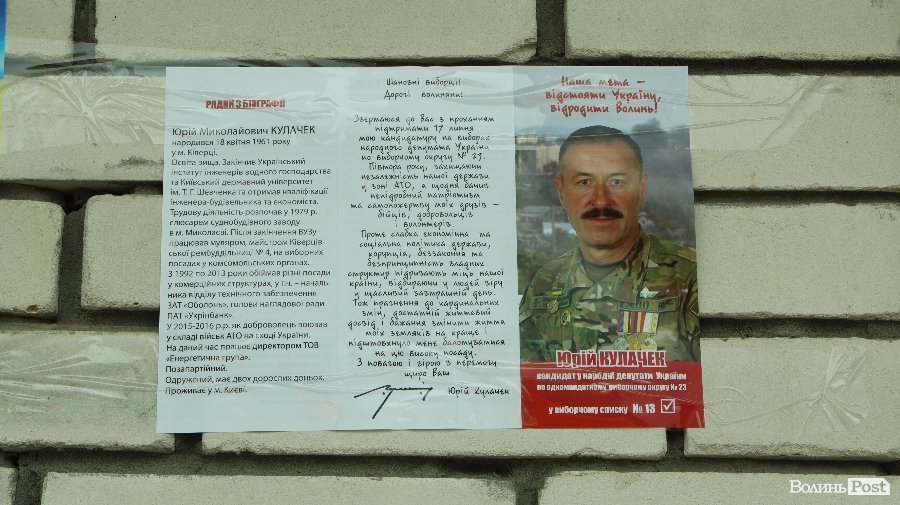 РЯДКИ З БІОГРАФІЇ
Юрій Миколайович КУЛАЧЕК
народився 18 квітня 1961 року
у м. Ківерці.
Освіта вища. Закінчив Український
інститут інженерів водного господарства
та Київський державний університет
ім. Т. Г. Шевченка та отримав кваліфікації
інженера-будівельника та економіста.
Трудову діяльність розпочав у 1979 р.
слюсарем суднобудівного заводу
в м. Миколаєві. Після закінчення ВУЗу
працював муляром, майстром Ківерців-
рембуддільниці № 4, на виборних
посадах у комсомольських органах.
З 1992 по 2013 роки обіймав різні посади
у комерційних структурах, у т.ч. – началь-
ника відділу технічного забезпечення
ЗАТ «Оболонь», голови наглядової ради
ПАТ «Укрінбанк».
У 2015-2016 р.р. як доброволець воював
у складі військ АТО на сході України.
На даний час працює директором ТОВ
«Енергетична група».
Позапартійний.
Одружений, має двох дорослих доньок.
Проживає у м. Києві.
Шановні виборці!
Дорогі волиняни!
Звертаюся до Вас з проханням
підтримати 17 липня
мою кандидатуру на виборах
народного депутата України
по виборчому округу № 23.
Півтора року, захищаючи
незалежність нашої держави
у зоні АТО, я щодня бачив
непідробний патріотизм
та самопожертву моїх друзів –
бійців, добровольців
і волонтерів.
Проте слабка економічна та
соціальна політика держави,
корупція, беззаконня та
безпринципність владних
структур підривають міць нашої
країни, відбираючи у людей віру
у щасливий завтрашній день.
Тож прагнення до кардинальних
змін, достатній життєвий
досвід і бажання змінити життя
моїх земляків на краще і
підштовхнуло мене балотуватися
на цю високу посаду.
З повагою і вірою в перемогу
щиро Ваш
Юрій Кулачек
Наша мета –
відстояти Україну,
відродити Волинь!
Юрій КУЛАЧЕК
кандидат у народні депутати України
по одномандатному виборчому округу № 23
у виборчому списку № 13
ВолиньPost